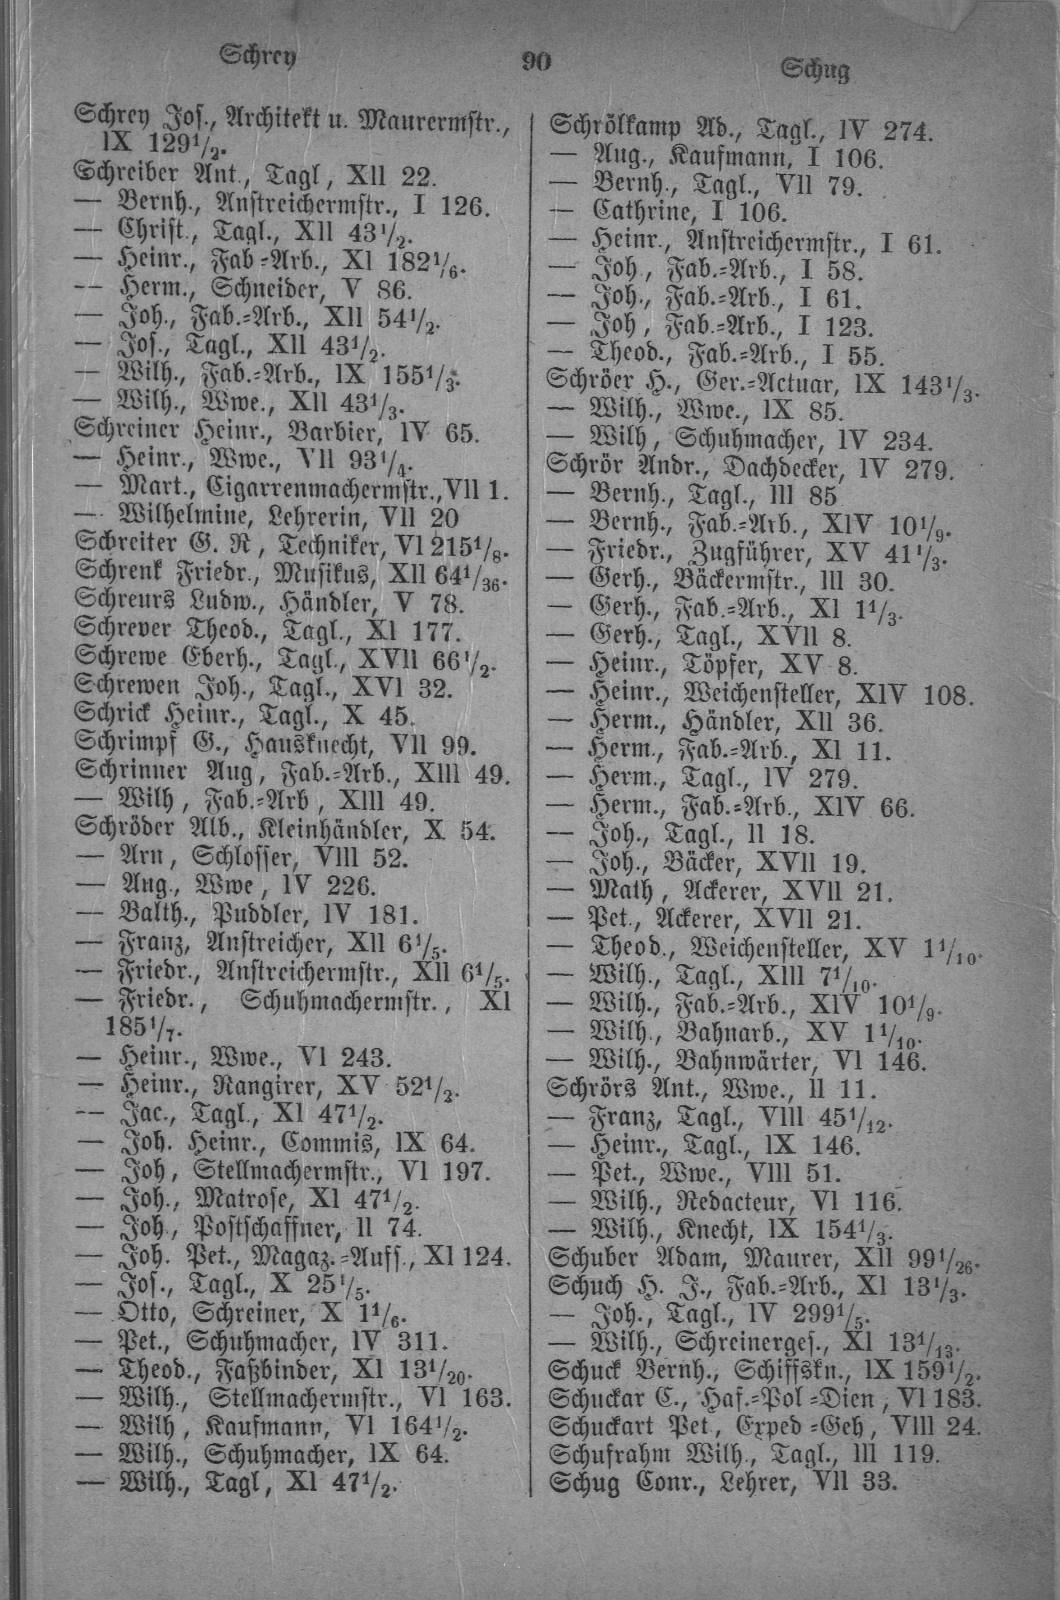 Schrey
90
Schug
Schrey Jos., Architekt u. Maurermstr.,
IX 129 1/2.
Schreiber Ant., Tagl, XII 22.
— Bernh., Anstreichermstr., I 126.
— Christ., Tagl., XII 43 1/2.
— Heinr., Fab-Arb., XI 182 1/6.
— Herm., Schneider, V 86.
— Joh., Fab.-Arb., XII 54 1/2.
— Jos., Tagl., XII 43 1/2.
— Wilh., Fab.-Arb., IX 155 1/3.
— Wilh., Wwe., XII 43 1/3.
Schreiner Heinr., Barbier, IV 65.
— Heinr., Wwe., VII 93 1/4.
— Mart., Cigarrenmachermstr., VII 1.
— Wilhelmine, Lehrerin, VII 20
Schreiter G. R, Techniker, VI 215 1/8.
Schrenk Friedr., Musikus, XII 64 1/36.
Schreurs Ludw., Händler, V 78.
Schrever Theod., Tagl., XI 177.
Schrewe Eberh., Tagl., XVII 66 1/2.
Schrewen Joh., Tagl., XVI 32.
Schrick Heinr., Tagl., X 45.
Schrimpf G., Hausknecht, VII 99.
Schrinner Aug, Fab.-Arb., XIII 49.
— Wilh, Fab.-Arb, XIII 49.
Schröder Alb., Kleinhändler, X 54.
— Arn, Schlosser, VIII 52.
— Aug., Wwe, IV 226.
— Balth., Puddler, IV 181.
— Franz, Anstreicher, XII 6 1/5.
— Friedr., Anstreichermstr., XII 6 1/5.
— Friedr., Schuhmachermstr., XI
185 1/7.
— Heinr., Wwe., VI 243.
— Heinr., Rangirer, XV 52 1/2.
— Jac., Tagl., XI 47 1/2.
— Joh. Heinr., Commis, IX 64.
— Joh, Stellmachermstr., VI 197.
— Joh., Matrose, XI 47 1/2.
— Joh., Postschaffner, II 74.
— Joh. Pet., Magaz.-Aufs., XI 124.
— Jos., Tagl., X 25 1/5.
— Otto, Schreiner, X 1 1/6.
— Pet., Schuhmacher, IV 311.
— Theod., Faßbinder, XI 13 1/20.
— Wilh., Stellmachermstr., VI 163.
— Wilh, Kaufmann, VI 164 1/2.
— Wilh., Schuhmacher, IX 64.
— Wilh., Tagl, XI 47 1/2.
Schrölkamp Ad., Tagl., IV 274.
— Aug., Kaufmann, I 106.
— Bernh., Tagl., VII 79.
— Cathrine, I 106.
— Heinr., Anstreichermstr., I 61.
— Joh., Fab.-Arb., I 58.
— Joh., Fab.-Arb., I 61.
— Joh, Fab.-Arb., I 123.
— Theod., Fab.-Arb., I 55.
Schröer H., Ger.-Actuar, IX 143 1/3.
— Wilh., Wwe., IX 85.
— Wilh, Schuhmacher, IV 234.
Schrör Andr., Dachdecker, IV 279.
— Bernh., Tagl., III 85
— Bernh., Fab.-Arb., XIV 10 1/9.
— Friedr., Zugführer, XV 41 1/3.
— Gerh., Bäckermstr., III 30.
— Gerh., Fab.-Arb., XI 1 1/3.
— Gerh., Tagl., XVII 8.
— Heinr., Töpfer, XV 8.
— Heinr., Weichensteller, XIV 108.
— Herm., Händler, XII 36.
— Herm., Fab.-Arb., XI 11.
— Herm., Tagl., IV 279.
— Herm., Fab.-Arb., XIV 66.
— Joh., Tagl., II 18.
— Joh., Bäcker, XVII 19.
— Math, Ackerer, XVII 21.
— Pet., Ackerer, XVII 21.
— Theod., Weichensteller, XV 1 1/10.
— Wilh., Tagl., XIII 7 1/10.
— Wilh., Fab.-Arb., XIV 10 1/9.
— Wilh., Bahnarb., XV 1 1/10.
— Wilh., Bahnwärter, VI 146.
Schrörs Ant., Wwe., II 11.
— Franz, Tagl., VIII 45 1/12.
— Heinr., Tagl., IX 146.
— Pet., Wwe., VIII 51.
— Wilh., Redacteur, VI 116.
— Wilh., Knecht, IX 154 1/3.
Schuber Adam, Maurer, XII 99 1/26.
Schuch H. J., Fab.-Arb., XI 13 1/3.
— Joh., Tagl., IV 299 1/5.
— Wilh., Schreinerges., XI 13 1/13.
Schuck Bernh., Schiffskn., IX 159 1/2.
Schuckar C., Haf.-Pol-Dien, VI 183.
Schuckart Pet, Exped-Geh, VIII 24.
Schufrahm Wilh., Tagl., III 119.
Schug Conr., Lehrer, VII 33.